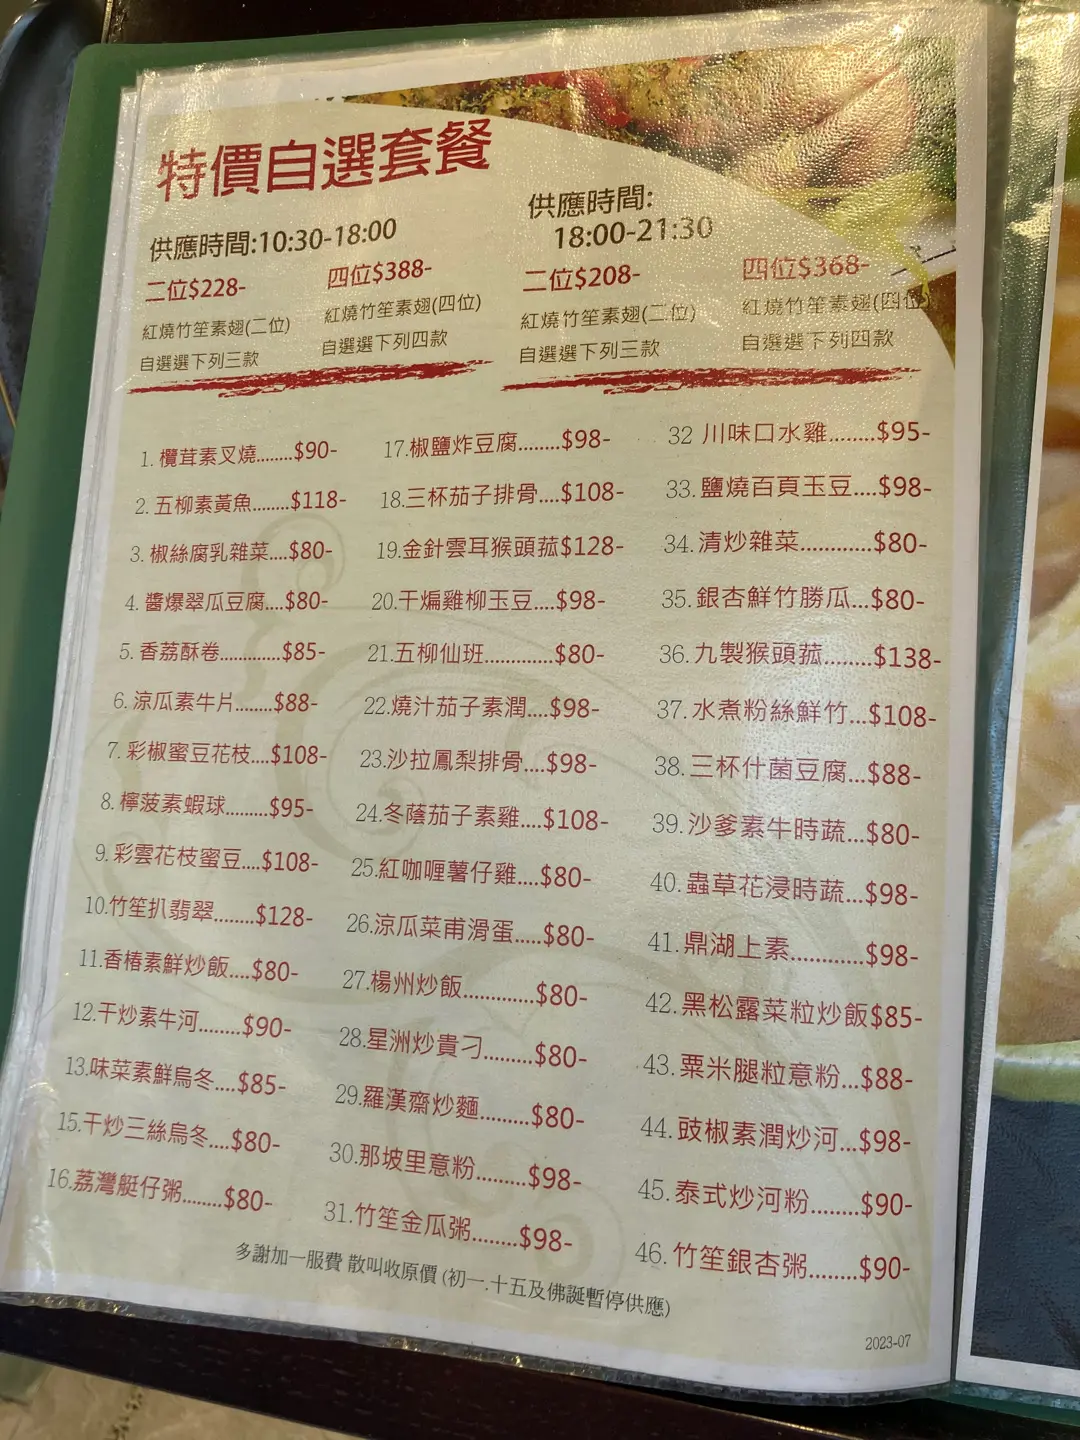 特價自選套餐
供應時間:10:30-18:00
二位$228-
紅燒竹笙素翅(二位)
自選選下列三款
四位$388-
紅燒竹笙素翅(四位)
自選選下列四款
供應時間:
18:00-21:30
二位$208-
紅燒竹笙素翅(二位)
自選選下列三款
四位$368-
紅燒竹笙素翅(四位)
自選選下列四款
1. 欖茸素叉燒........$90-
2. 五柳素黃魚........$118-
3. 椒絲腐乳雜菜....$80-
4. 醬爆翠瓜豆腐....$80-
5. 香荔酥卷.............$85-
6. 涼瓜素牛片........$88-
7. 彩椒蜜豆花枝....$108-
8. 檸菠素蝦球.........$95-
9. 彩雲花枝蜜豆....$108-
10.竹笙扒翡翠........$128-
11.香椿素鮮炒飯....$80-
12.干炒素牛河........$90-
13.味菜素鮮烏冬....$85-
15.干炒三絲烏冬....$80-
16.荔灣艇仔粥........$80-
17.椒鹽炸豆腐........$98-
18.三杯茄子排骨....$108-
19.金針雲耳猴頭菰$128-
20.干煸雞柳玉豆....$98-
21.五柳仙班.............$80-
22.燒汁茄子素潤....$98-
23.沙拉鳳梨排骨....$98-
24.冬蔭茄子素雞....$108-
25.紅咖喱薯仔雞....$80-
26.涼瓜菜甫滑蛋.....$80-
27.楊州炒飯.............$80-
28.星洲炒貴刁.........$80-
29.羅漢齋炒麵.........$80-
30.那坡里意粉.........$98-
31.竹笙金瓜粥........$98-
32 川味口水雞........$95-
33.鹽燒百頁玉豆....$98-
34.清炒雜菜............$80-
35.銀杏鮮竹勝瓜...$80-
36.九製猴頭菰........$138-
37.水煮粉絲鮮竹...$108-
38.三杯什菌豆腐...$88-
39.沙爹素牛時蔬...$80-
40.蟲草花浸時蔬...$98-
41.鼎湖上素............$98-
42.黑松露菜粒炒飯$85-
43.粟米腿粒意粉...$88-
44.豉椒素潤炒河...$98-
45.泰式炒河粉........$90-
46.竹笙銀杏粥........$90-
多謝加一服費 散叫收原價 (初一.十五及佛誕暫停供應)
2023-07